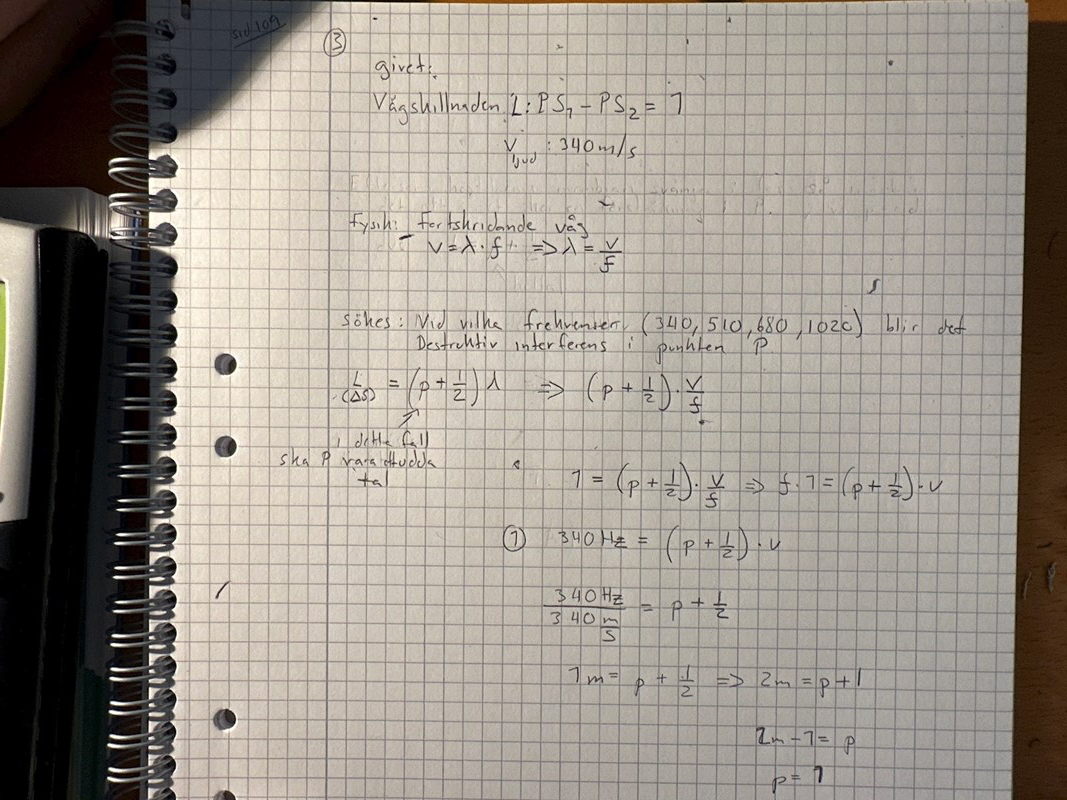 sid 109
③
givet:
Vägskillnaden L: PS₁ - PS₂ = 1
v ljud : 340 m/s
Fysik: Fortskridande våg
v = λ · f => λ = v/f
sökes: Vid vilka frekvenser (340, 510, 680, 1020) blir det
Destruktiv interferens i punkten P
L (Δs) = (p + 1/2) λ => (p + 1/2) · v/f
i detta fall
ska P vara udda
tal
1 = (p + 1/2) · v/f => f · 1 = (p + 1/2) · v
① 340 Hz = (p + 1/2) · v
340 Hz / 340 m/s = p + 1/2
1 m = p + 1/2 => 2m = p + 1
2m - 1 = p
p = 1